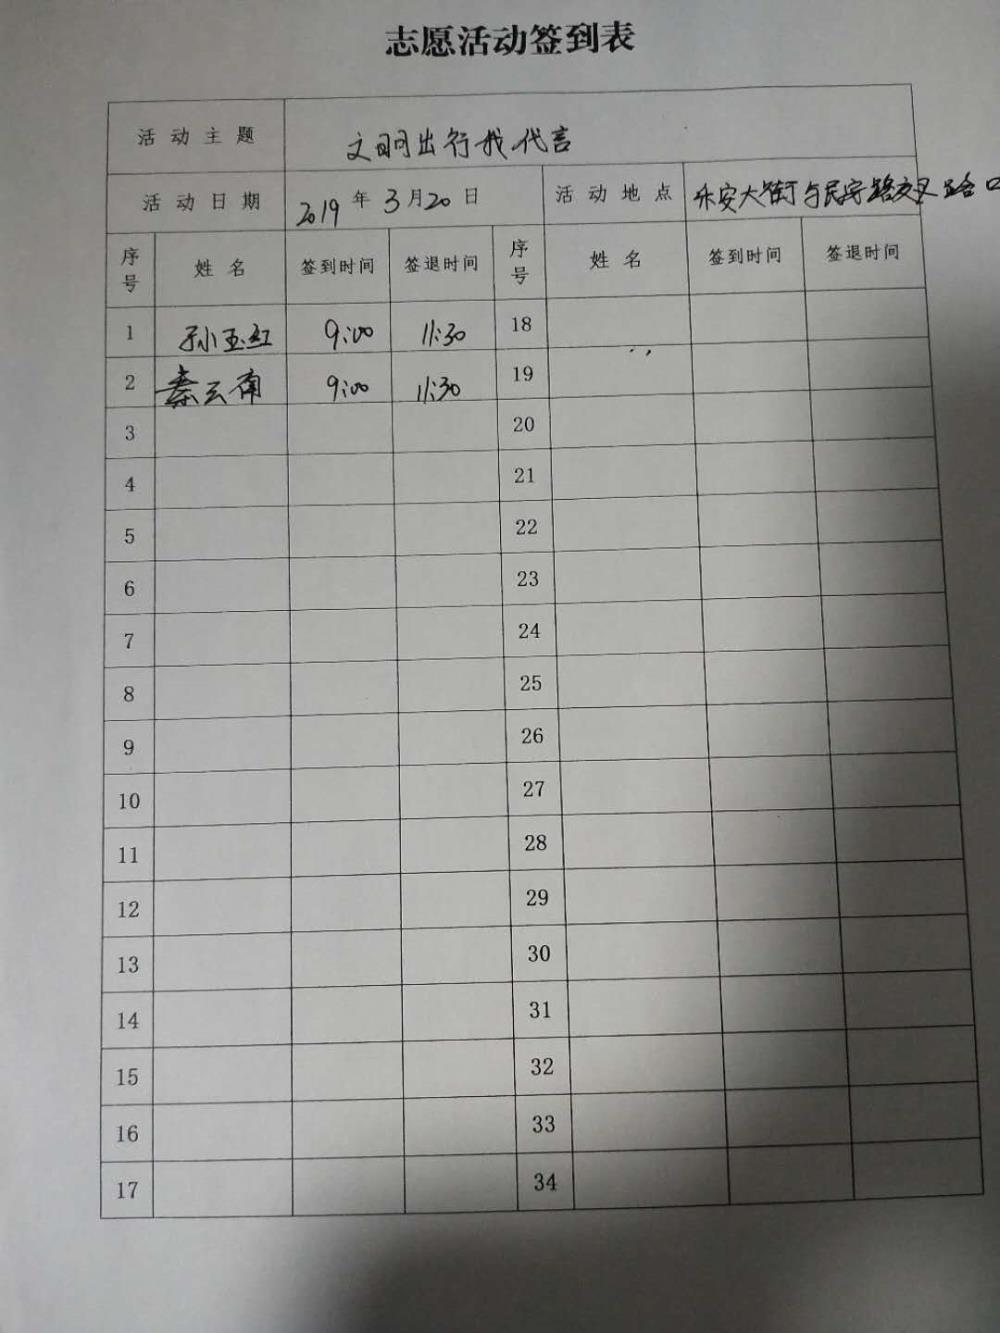 志愿活动签到表
活动主题 文明出行我代言
活动日期 2019年3月20日 活动地点 安大街与民 路交叉路口
序号 姓名 签到时间 签退时间 序号 姓名 签到时间 签退时间
1 孙玉红 9:00 11:30 18
2 秦云南 9:00 11:30 19
3 20
4 21
5 22
6 23
7 24
8 25
9 26
10 27
11 28
12 29
13 30
14 31
15 32
16 33
17 34